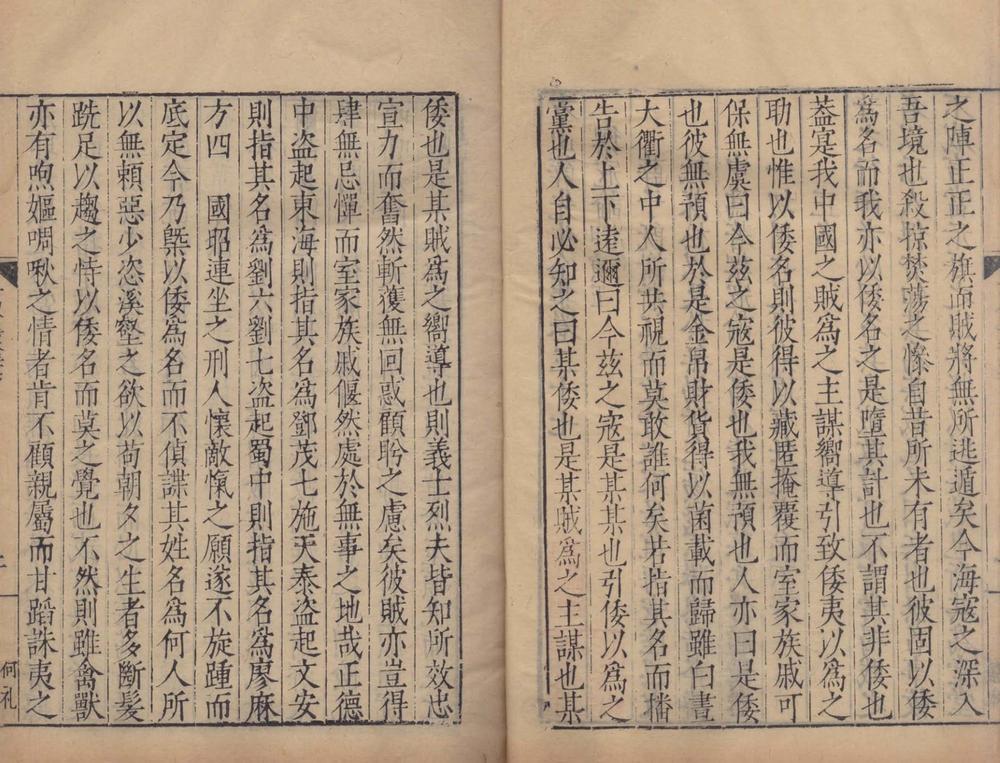 之陣正正之旗而賊將無所逃遁矣今海寇之深入
吾境也殺掠焚蕩之慘自昔所未有者也彼固以倭
爲名而我亦以倭名之是墮其計也不謂其非倭也
葢寔我中國之賊爲之主謀嚮導引致倭夷以爲之
助也惟以倭名則彼得以藏匿掩覆而室家族戚可
保無虞曰今茲之寇是倭也我無預也人亦曰是倭
也彼無預也於是金帛財貨得以菌載而歸雖白晝
大衢之中人所共視而莫敢誰何矣若指其名而播
告於上下逺邇曰今茲之寇是某某也引倭以爲之
黨也人自必知之曰某倭也是某賊爲之主謀也某
倭也是某賊爲之嚮導也則義士烈夫皆知所效忠
宣力而奮然斬獲無回惑顧盻之慮矣彼賊亦豈得
肆無忌憚而室家族戚偃然處於無事之地哉正德
中盜起東海則指其名爲鄧茂七施天泰盜起文安
則指其名爲劉六劉七盜起蜀中則指其名爲廖麻
方四 國昭連坐之刑人懷敵愾之願遂不旋踵而
底定今乃槩以倭爲名而不偵諜其姓名爲何人所
以無頼惡少恣溪壑之欲以苟朝夕之生者多斷髮
跣足以趨之恃以倭名而莫之覺也不然則雖禽獸
亦有喣嫗啁啾之情者肯不顧親屬而甘蹈誅夷之
何礼